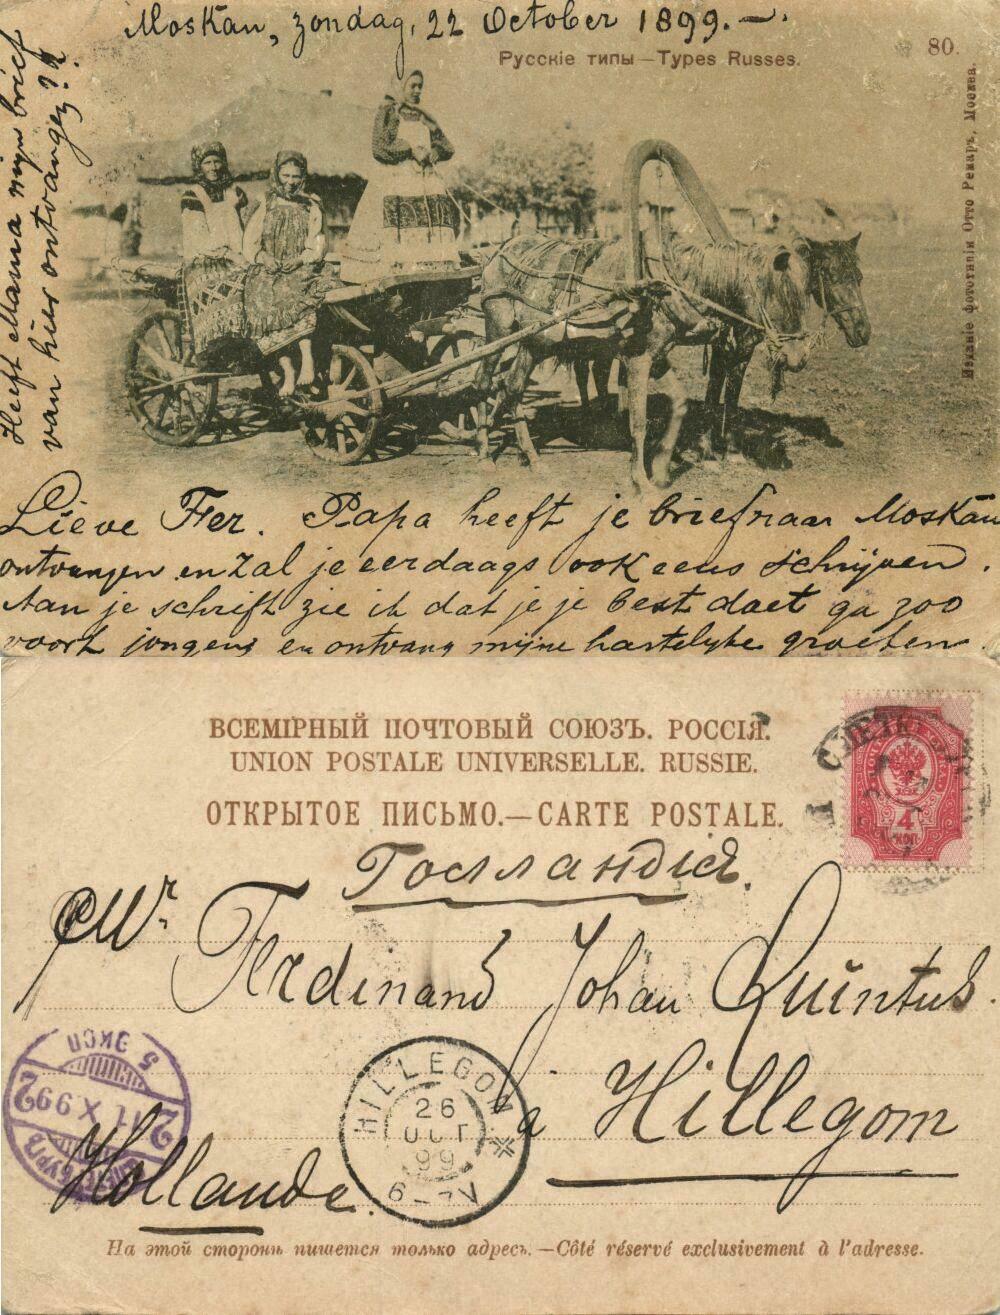 Moskau, zondag, 22 October 1899.—.
Русскіе типы — Types Russes.
80.
Изданіе фототипіи Отто Ренаръ, Москва.
Heeft Mama mijn brief
van hier ontvangen??
Lieve Fer. Papa heeft je brief naar Moskau
ontvangen en zal je eerdaags ook eens schrijven.
Aan je schrift zie ik dat je je best doet ga zoo
voort jongens en ontvang mijne hartelyke groeten.
ВСЕМІРНЫЙ ПОЧТОВЫЙ СОЮЗЪ. РОССІЯ.
UNION POSTALE UNIVERSELLE. RUSSIE.
ОТКРЫТОЕ ПИСЬМО.—CARTE POSTALE.
4
КОП
Голландія.
Mr Ferdinand Johan Quintus.
à Hillegom
Hollande.
5 ЭКСП
2 11 X 99 2
HILLEGOM
26
OCT
99
6-7V
На этой сторонѣ пишется только адресъ.—Côté réservé exclusivement à l'adresse.